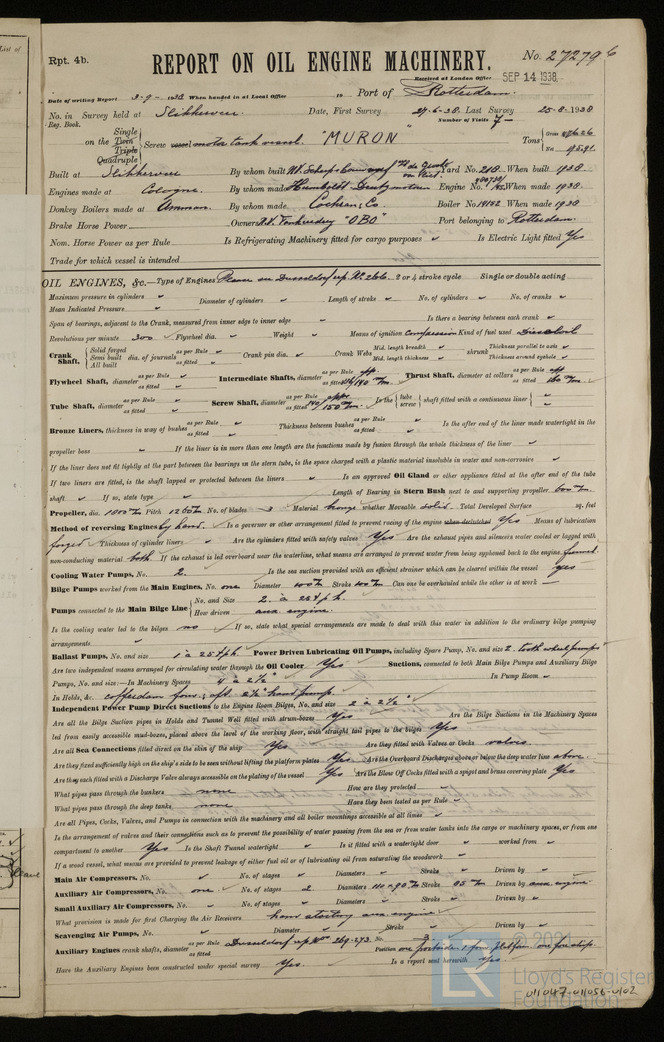 Rpt. 4b.
REPORT ON OIL ENGINE MACHINERY.
No. 27279
Received at London Office SEP 14 1938
Date of writing Report 3-9-1938 When handed in at Local Office 19 Port of Rotterdam.
No. in Survey held at Slikkerveer Date, First Survey 27-6-38 Last Survey 25-8-1938
Reg. Book. Number of Visits 7
Single
on the Twin Screw vessel motor tank vessel. "MURON" Tons Gross
Triple Net
Quadruple
Built at Slikkerveer By whom built Yard No. 218 When built 1938
Engines made at Cologne. By whom made Humboldt Deutzmotoren Engine No. When made 1938
Donkey Boilers made at Annan. By whom made Cochran & Co. Boiler No. 14152 When made 1938
Brake Horse Power Owners N.V. Tankreederij "OBO" Port belonging to Rotterdam.
Nom. Horse Power as per Rule Is Refrigerating Machinery fitted for cargo purposes Is Electric Light fitted Yes
Trade for which vessel is intended
OIL ENGINES, &c.—Type of Engines Please see Dusseldorf rep. No. 266. 2 or 4 stroke cycle Single or double acting
Maximum pressure in cylinders Diameter of cylinders Length of stroke No. of cylinders No. of cranks
Mean Indicated Pressure
Span of bearings, adjacent to the Crank, measured from inner edge to inner edge Is there a bearing between each crank
Revolutions per minute 300 Flywheel dia. Weight Means of ignition compression Kind of fuel used Diesel oil
Crank Shaft, Solid forged Semi built All built dia. of journals as per Rule as fitted Crank pin dia. Crank Webs Mid. length breadth Mid. length thickness shrunk Thickness parallel to axis Thickness around eyehole
Flywheel Shaft, diameter as per Rule as fitted Intermediate Shafts, diameter as per Rule as fitted Thrust Shaft, diameter at collars as per Rule as fitted 160 mm.
Tube Shaft, diameter as per Rule as fitted Screw Shaft, diameter as per Rule as fitted Is the tube screw shaft fitted with a continuous liner
Bronze Liners, thickness in way of bushes as per Rule as fitted Thickness between bushes as per Rule as fitted Is the after end of the liner made watertight in the
propeller boss If the liner is in more than one length are the junctions made by fusion through the whole thickness of the liner
If the liner does not fit tightly at the part between the bearings in the stern tube, is the space charged with a plastic material insoluble in water and non-corrosive
If two liners are fitted, is the shaft lapped or protected between the liners Is an approved Oil Gland or other appliance fitted at the after end of the tube
shaft If so, state type Length of Bearing in Stern Bush next to and supporting propeller 600 mm.
Propeller, dia. Pitch No. of blades 3 Material bronze whether Moveable solid. Total Developed Surface sq. feet
Method of reversing Engines by hand. Is a governor or other arrangement fitted to prevent racing of the engine when declutched Yes Means of lubrication
forced Thickness of cylinder liners Are the cylinders fitted with safety valves Yes Are the exhaust pipes and silencers water cooled or lagged with
non-conducting material both. If the exhaust is led overboard near the waterline, what means are arranged to prevent water from being syphoned back to the engine funnel
Cooling Water Pumps, No. 2. Is the sea suction provided with an efficient strainer which can be cleared within the vessel yes
Bilge Pumps worked from the Main Engines, No. one Diameter 100 mm Stroke 100 mm Can one be overhauled while the other is at work
Pumps connected to the Main Bilge Line No. and Size 2. à 25 t p h.
How driven aux. engine.
Is the cooling water led to the bilges no If so, state what special arrangements are made to deal with this water in addition to the ordinary bilge pumping
arrangements
Ballast Pumps, No. and size 1 à 25 t p h Power Driven Lubricating Oil Pumps, including Spare Pump, No. and size 2 tooth wheel pumps
Are two independent means arranged for circulating water through the Oil Cooler Yes Suctions, connected to both Main Bilge Pumps and Auxiliary Bilge
Pumps, No. and size:—In Machinery Spaces 4 à 2½" In Pump Room
In Holds, &c. cofferdam forw. & aft. 2½" hand pump.
Independent Power Pump Direct Suctions to the Engine Room Bilges, No. and size 2 à 2½"
Are all the Bilge Suction pipes in Holds and Tunnel Well fitted with strum-boxes Yes Are the Bilge Suctions in the Machinery Spaces
led from easily accessible mud-boxes, placed above the level of the working floor, with straight tail pipes to the bilges Yes
Are all Sea Connections fitted direct on the skin of the ship Yes Are they fitted with Valves or Cocks valves.
Are they fixed sufficiently high on the ship's side to be seen without lifting the platform plates Yes Are the Overboard Discharges above or below the deep water line above.
Are they each fitted with a Discharge Valve always accessible on the plating of the vessel Yes Are the Blow Off Cocks fitted with a spigot and brass covering plate Yes
What pipes pass through the bunkers none How are they protected
What pipes pass through the deep tanks none Have they been tested as per Rule
Are all Pipes, Cocks, Valves, and Pumps in connection with the machinery and all boiler mountings accessible at all times
Is the arrangement of valves and their connections such as to prevent the possibility of water passing from the sea or from water tanks into the cargo or machinery spaces, or from one
compartment to another Yes Is the Shaft Tunnel watertight Is it fitted with a watertight door worked from
If a wood vessel, what means are provided to prevent leakage of either fuel oil or of lubricating oil from saturating the woodwork
Main Air Compressors, No. No. of stages Diameters Stroke Driven by
Auxiliary Air Compressors, No. one No. of stages 2 Diameters 110 x 90 mm Stroke 65 mm Driven by aux. engine
Small Auxiliary Air Compressors, No. No. of stages Diameters Stroke Driven by
What provision is made for first Charging the Air Receivers hand starting aux. engine
Scavenging Air Pumps, No. Diameter Stroke Driven by
Auxiliary Engines crank shafts, diameter as per Rule as fitted Dusseldorf rep. Nos. 269-273. No. 3
Position one portside, one forship.
Have the Auxiliary Engines been constructed under special survey Yes. Is a report sent herewith yes.
© 2021
LR
Lloyd's Register
Foundation
011047-011056-0102